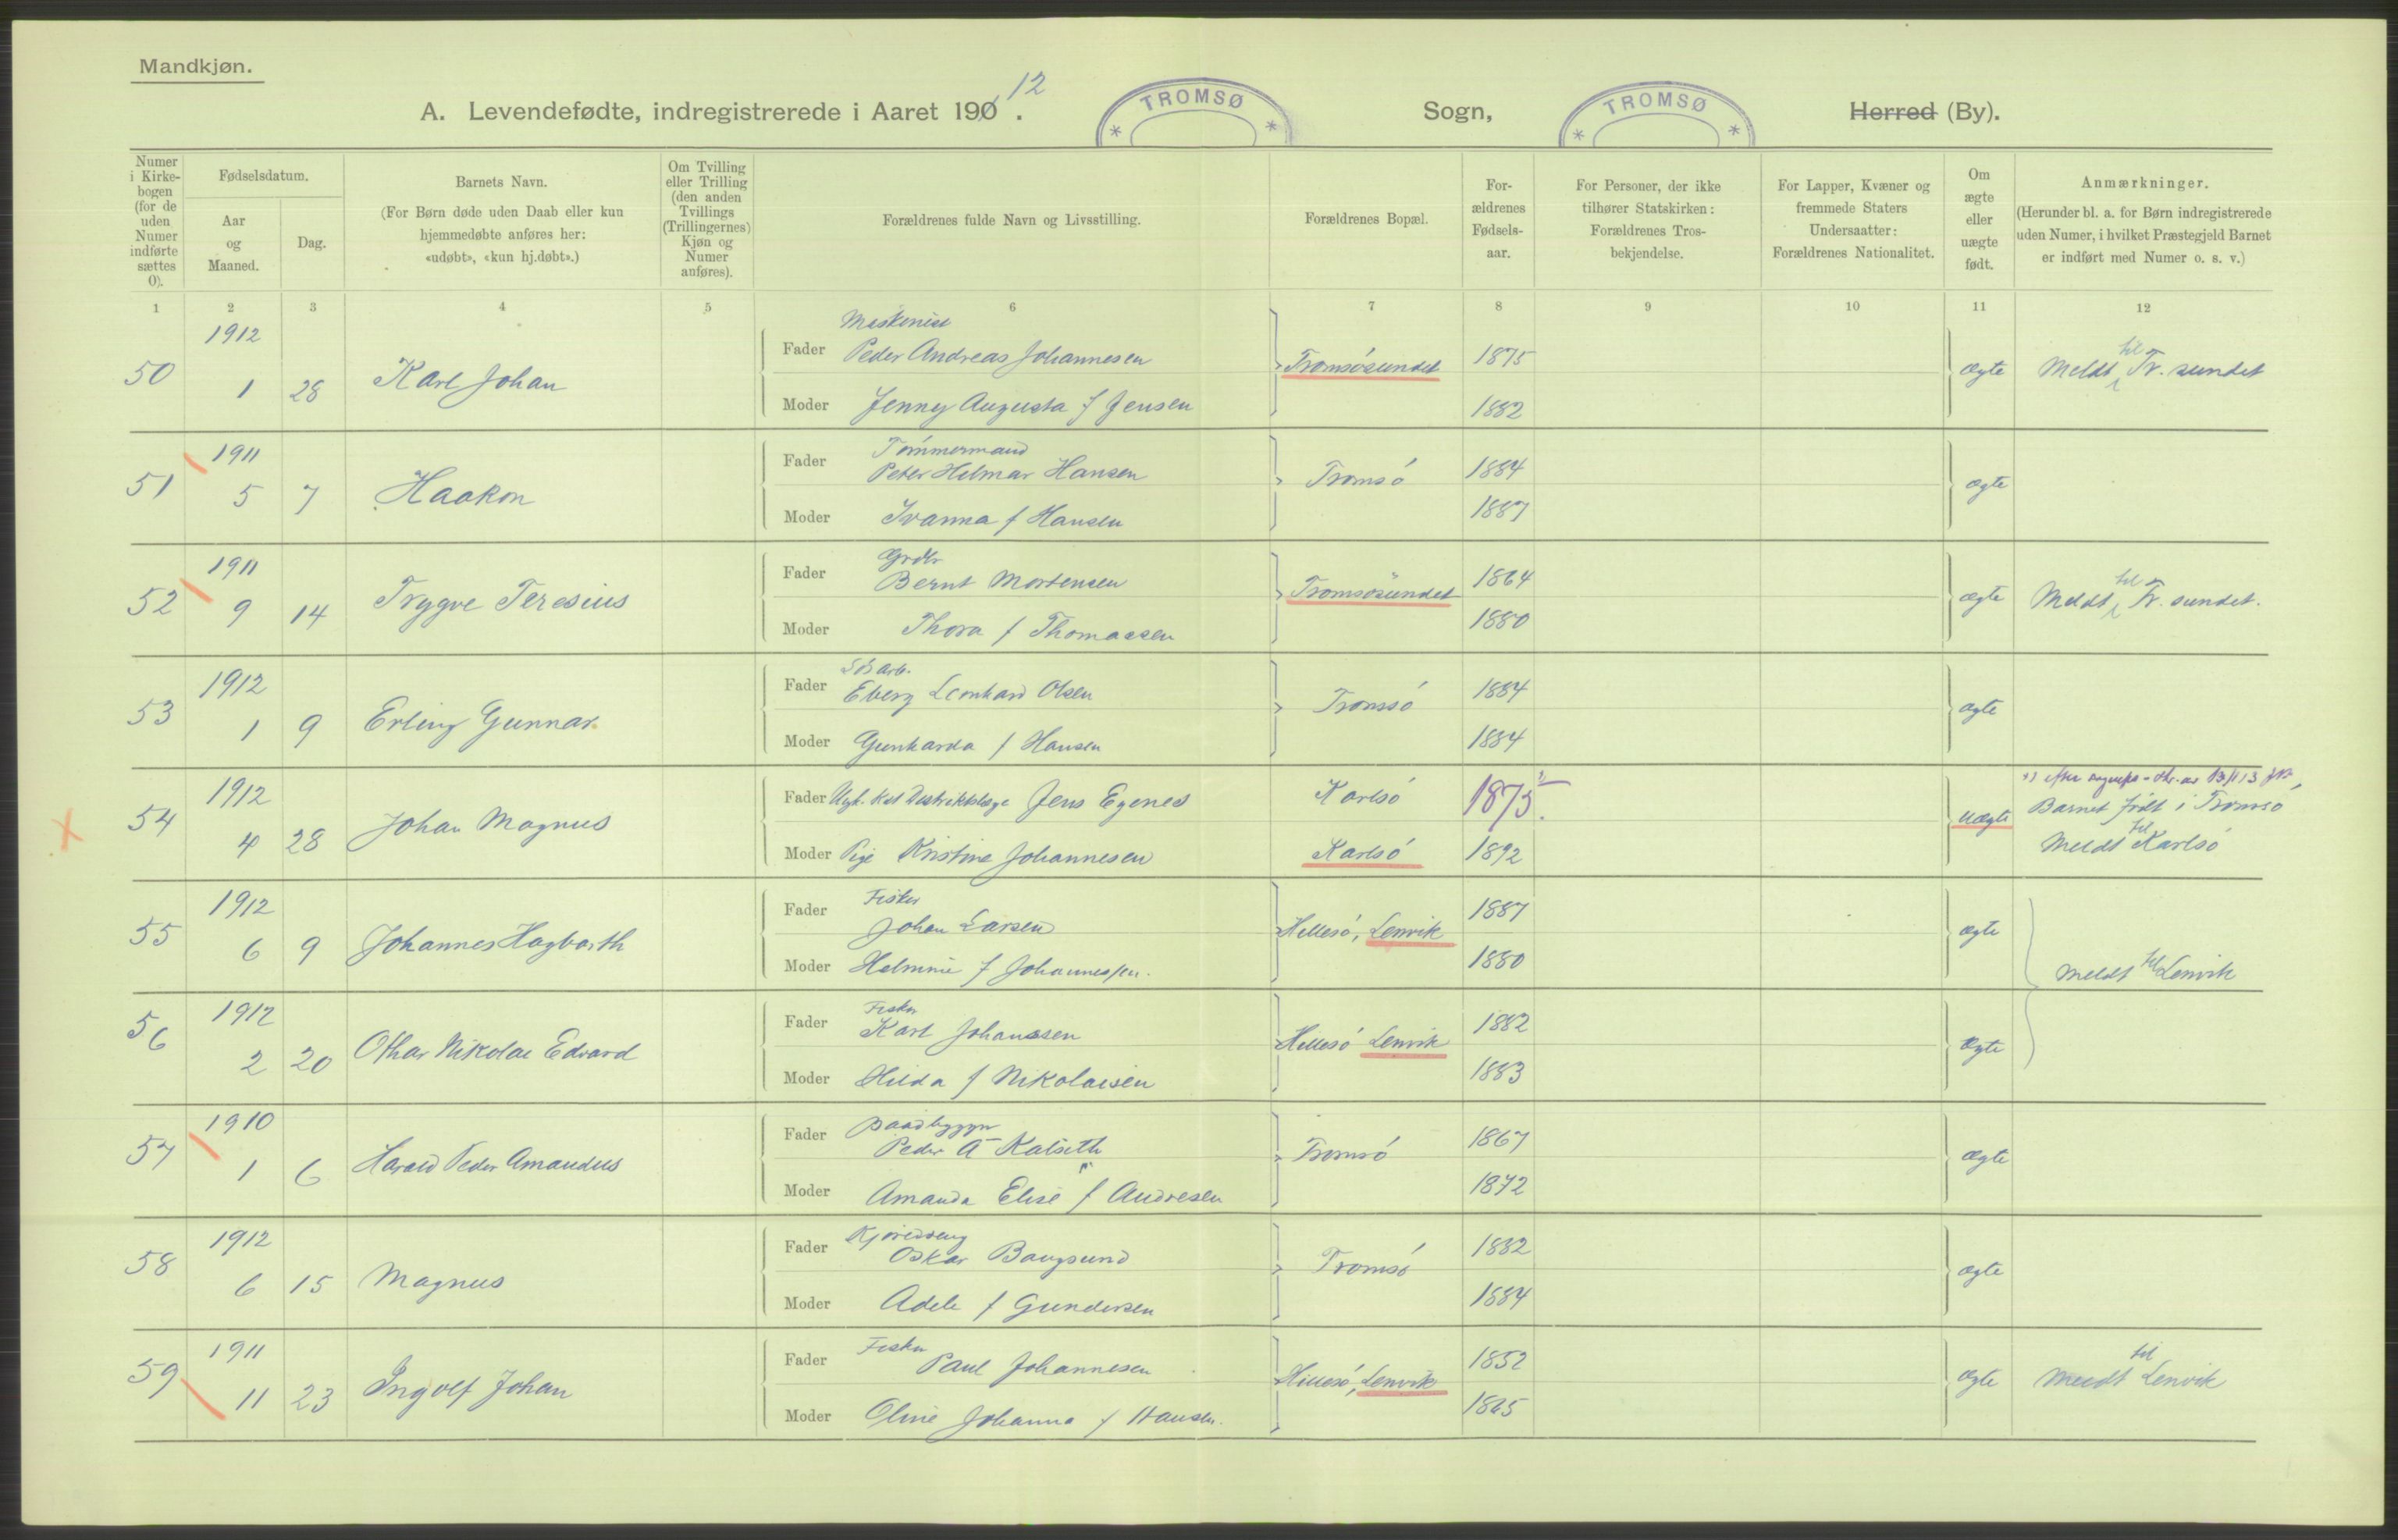 Mandkjøn.
A. Levendefødte, indregistrerede i Aaret 190 12 .
TROMSØ
Sogn,
TROMSØ
Herred (By).
Numer i Kirkebogen (for de uden Numer indførte sættes 0).
Fødselsdatum.
Aar og Maaned.
Dag.
Barnets Navn.
(For Børn døde uden Daab eller kun hjemmedøbte anføres her: «udøbt», «kun hj.døbt».)
Om Tvilling eller Trilling (den anden Tvillings (Trillingernes) Kjøn og Numer anføres).
Forældrenes fulde Navn og Livsstilling.
Forældrenes Bopæl.
Forældrenes Fødselsaar.
For Personer, der ikke tilhører Statskirken: Forældrenes Trosbekjendelse.
For Lapper, Kvæner og fremmede Staters Undersaatter: Forældrenes Nationalitet.
Om ægte eller uægte født.
Anmærkninger.
(Herunder bl. a. for Børn indregistrerede uden Numer, i hvilket Præstegjeld Barnet er indført med Numer o. s. v.)
1 2 3 4 5 6 7 8 9 10 11 12
50 1912 1 28 Karl Johan
Fader Maskinist Peder Andreas Johannesen Tromsösundet 1875 ægte Meldt til Tr. sundet
Moder Jenny Augusta f Jensen 1882
51 1911 5 7 Haakon
Fader Tömmermand Peter Hilmar Hansen Tromsö 1884 ægte
Moder Ivanna f Hansen 1887
52 1911 9 14 Trygve Teresius
Fader Grdbr Bernt Mortensen Tromsösundet 1864 ægte Meldt til Tr. sundet.
Moder Thora f Thomassen 1880
53 1912 1 9 Erling Gunnar
Fader Eberg Leonhard Olsen Tromsö 1884 ægte
Moder Gunharda f Hansen 1884
54 1912 4 28 Johan Magnus
Fader Ugk. Kst Distriktslæge Jens Egenes Karlsö 1875 1). uægte Barnet födt i Tromsö
Moder Pige Kristine Johannesen Karlsö 1892 Meldt til Karlsö
55 1912 6 9 Johannes Hagbarth
Fader Fisker Johan Larsen Hillesö, Lenvik 1887 ægte
Moder Helmine f Johannessen. 1880 Meldt til Lenvik
56 1912 2 20 Othar Nikolai Edvard
Fader Fisker Karl Johanssen Hillesö Lenvik 1882 ægte
Moder Hilda f Nikolaisen 1883
57 1910 1 6 Harald Peder Amandus
Fader Baadbygger Peder A Kalseth Tromsö 1867 ægte
Moder Amanda Elise f Andresen 1872
58 1912 6 15 Magnus
Fader Oskar Baugsund Tromsö 1882 ægte
Moder Adele f Gundersen 1884
59 1911 11 23 Ingolf Johan
Fader Fisker Paul Johannesen Hillesö, Lenvik 1852 ægte Meldt til Lenvik
Moder Oline Johanna f Hansen. 1865